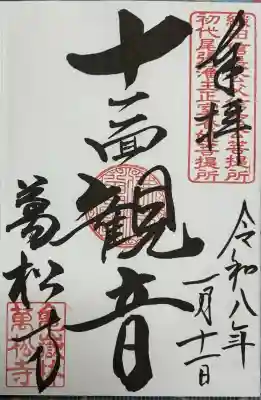 奉拝
織田信長公父信秀公菩提所
初代尾張藩主正室春姫菩提所
令和八年
一月十一日
十一面観音
萬松寺
亀嶽林
萬松寺